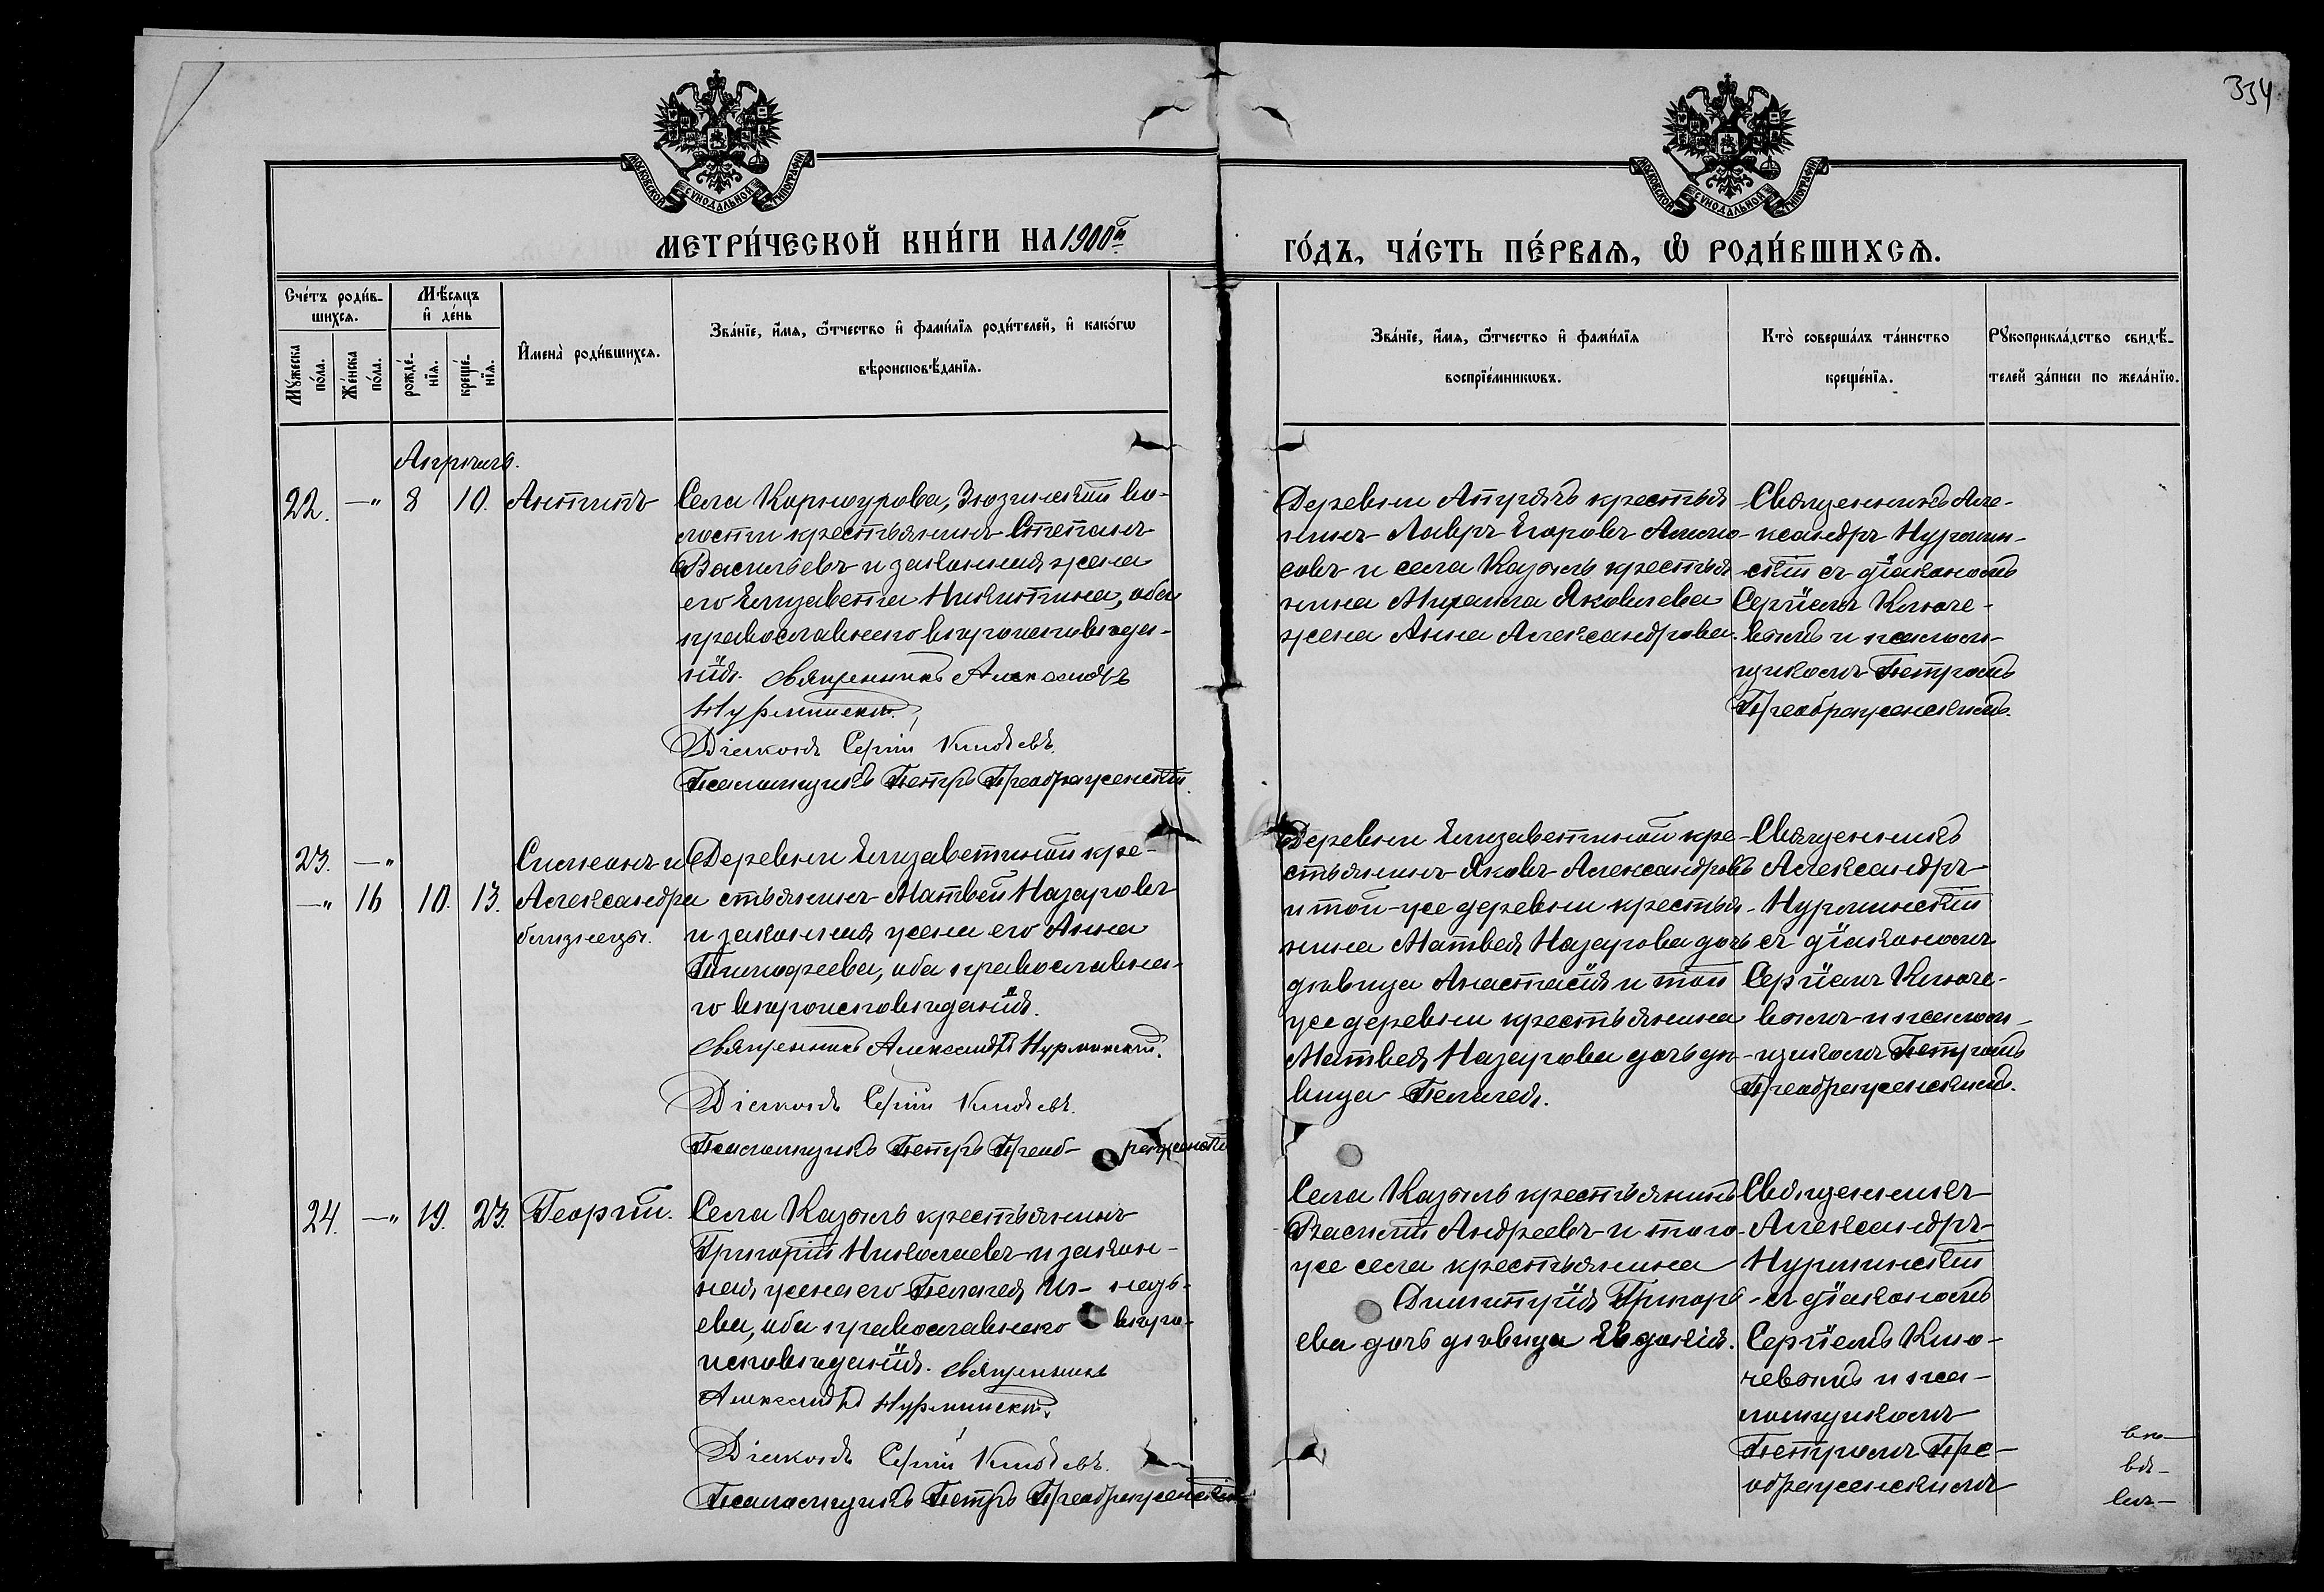 334
МОСКОВСКОЙ СУНОДАЛЬНОЙ ТИПОГРАФІИ
МОСКОВСКОЙ СУНОДАЛЬНОЙ ТИПОГРАФІИ
МЕТРИ́ЧЕСКОЙ КНИ́ГИ НА 1900й
ГО́ДЪ, ЧА́СТЬ ПЕ́РВАѦ, Ѡ҆ РОДИ́ВШИХСѦ.
Сче́тъ роди́в-
шихсѧ.
Мꙋ́жеска по́ла.
Же́нска по́ла.
Мѣ́сяцъ
и҆ де́нь
рожде́-
нїѧ.
креще́-
нїѧ.
И҆мена̀ роди́вшихсѧ.
Зва́нїе, и҆́мѧ, ѻ҆́тчество и҆ фами́лїѧ роди́телей, и҆ како́гѡ
вѣроисповѣ́данїѧ.
Зва́нїе, и҆́мѧ, ѻ҆́тчество и҆ фами́лїѧ
воспрїе́мникѡвъ.
Кто̀ соверша́лъ та́инство
креще́нїѧ.
Рꙋкоприкла́дство свидѣ́-
телей за́писи по жела́нїю.
Апрѣль.
22. —" 8 10. Антипъ
Села Коршурова, Зюзинской во-
лости крестьянинъ Степанъ
Васильевъ и законная жена
его Елизавета Никитина, оба
православнаго вѣроисповѣда-
нія. Священникъ Александръ
Нурминскій.
Діаконъ Сергій Ключевъ.
Псаломщикъ Петръ Преображенскій.
Деревни крестья-
нинъ Лавръ Егоровъ
совъ и села Казыль крестья-
нина Михаила Яковлева
жена Анна Александрова.
Священникъ Але-
ксандръ Нурмин-
скій съ діакономъ
Сергіемъ Ключе-
вымъ и псалом-
щикомъ Петромъ
Преображенскимъ.
23. —"
—" 16 10. 13.
Симеонъ и
Александра
близнецы.
Деревни Елизаветиной кре-
стьянинъ Матвей Назаровъ
и законная жена его Анна
Тимофеева, оба православна-
го вѣроисповѣданія.
Священникъ Александръ Нурминскій.
Діаконъ Сергій Ключевъ.
Псаломщикъ Петръ Преображенскій
Деревни Елизаветиной кре-
стьянинъ Яковъ Александровъ
и той-же деревни крестья-
нина Матвея Назарова дочь
дѣвица Анастасія и той
же деревни крестьянина
Матвея Назарова дочь дѣ-
вица Пелагея.
Священникъ
Александръ
Нурминскій
съ діакономъ
Сергіемъ Ключе-
вымъ и псалом-
щикомъ Петромъ
Преображенскимъ.
24. —" 19. 23. Георгій.
Села Казыль крестьянинъ
Григорій Николаевъ и закон-
ная жена его Пелагея Иг- натъ-
ева, оба православнаго вѣро-
исповѣданія. Священникъ
Александръ Нурминскій.
Діаконъ Сергій Ключевъ.
Псаломщикъ Петръ Преображенскій
Села Казыль крестьянинъ
Василій Андреевъ и того
же села крестьянина
Димитрія Григорь-
ева дочь дѣвица Евдокія.
Священникъ
Александръ
Нурминскій
съ діакономъ
Сергіемъ Клю-
чевымъ и пса-
ломщикомъ
Петромъ Пре-
ображенскимъ